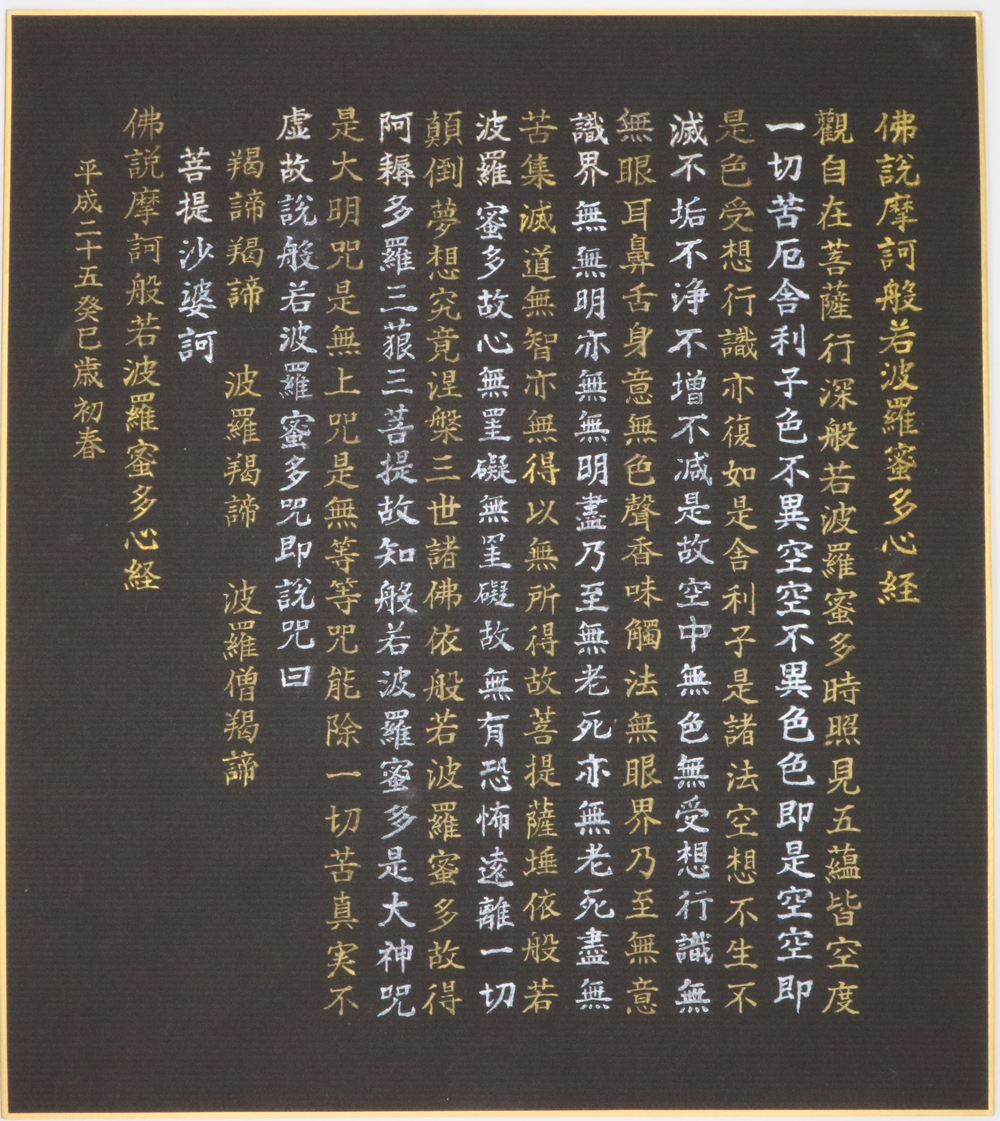 佛說摩訶般若波羅蜜多心経
觀自在菩薩行深般若波羅蜜多時照見五蘊皆空度
一切苦厄舍利子色不異空空不異色色即是空空即
是色受想行識亦復如是舍利子是諸法空想不生不
滅不垢不浄不増不減是故空中無色無受想行識無
無眼耳鼻舌身意無色聲香味觸法無眼界乃至無意
識界無無明亦無無明盡乃至無老死亦無老死盡無
苦集滅道無智亦無得以無所得故菩提薩埵依般若
波羅蜜多故心無罣礙無罣礙故無有恐怖遠離一切
顛倒夢想究竟涅槃三世諸佛依般若波羅蜜多故得
阿耨多羅三藐三菩提故知般若波羅蜜多是大神咒
是大明咒是無上咒是無等等咒能除一切苦真実不
虚故說般若波羅蜜多咒即說咒曰
羯諦羯諦　波羅羯諦　波羅僧羯諦
菩提沙婆訶
佛説摩訶般若波羅蜜多心経
平成二十五癸巳歳初春